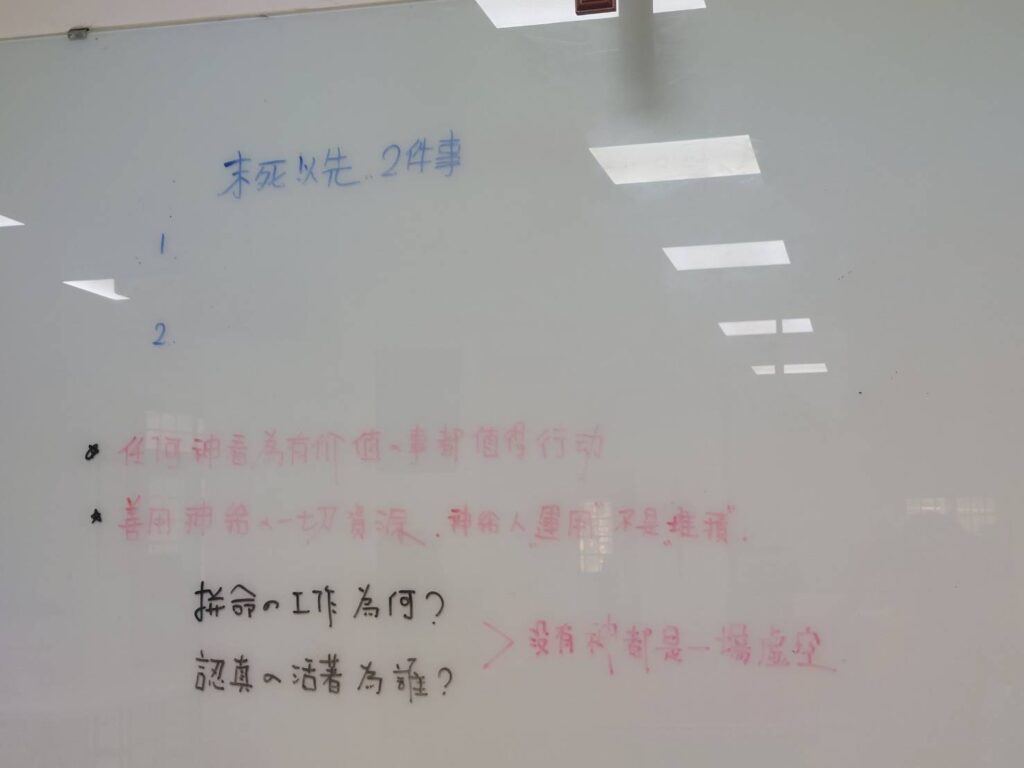 未死以先..2件事
1.
2.
任何神看為有价值の事都值得行动
★ 善用神給の一切資源.神給人"運用"不是"堆積".
拼命の工作為何?
認真の活著為誰?
> 没有神都是一場虛空